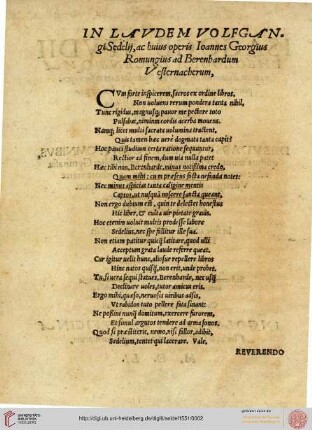 IN LAVDEM VOLFGAN-
gi Sedelij, ac huius operis Ioannes Georgius
Romungius ad Berenhardum
Vesternacherum,
CVm forte inspicerem, sacros ex ordine libros,
Non uoluens rerum pondera tanta nihil,
Tunc rigidus, magnusq; pauor me pectore toto
Pulsabat, nimium cordi acerba mouens.
Namq; licet multi sacrata uolumina tractent,
Quis tamen hæc uerè dogmata tanta capit?
Hoc pauci studium certa ratione sequuntur,
Rectior ad finem, dum uia nulla patet
Hæc tibi non, Berenharde, minus notissima credo,
Quàm mihi: cum præsens ficta ueneda notet:
Nec minus aspicias tanta caligine mentis
Captos, at nusquã noscere sancta queant,
Non ergo dubium est, quin te delectet honestus
Hic liber, & cultu uir pietate grauis.
Hoc etenim uoluit multis prodesse labore
Sedelius, nec spe fallitur ille sua.
Non etiam patitur quicq̃ latitare, quod ulli
Acceptum grata laude referre queat.
Cur igitur uelit hunc, aliosue repellere libros
Hinc natos quisq̃, non erit, unde probet.
Tu, si uera sequi statues, Berenharde, nec usq̃
Decliuere uoles, tutor amicus eris.
Ergo mihi, quæso, neruosis uiribus adsis,
Vt rabidos tuto pellere fisa sicut:
Ne possint nunq̃ domitum, exercere furorem,
Et simul argutos tendere ad arma sonos.
Quod si præstiteris, nemo, nisi fallor, adibit,
Sedelium, tentet qui lacerare. Vale,
REVERENDO
http://digi.ub.uni-heidelberg.de/diglit/seidel1551/0002